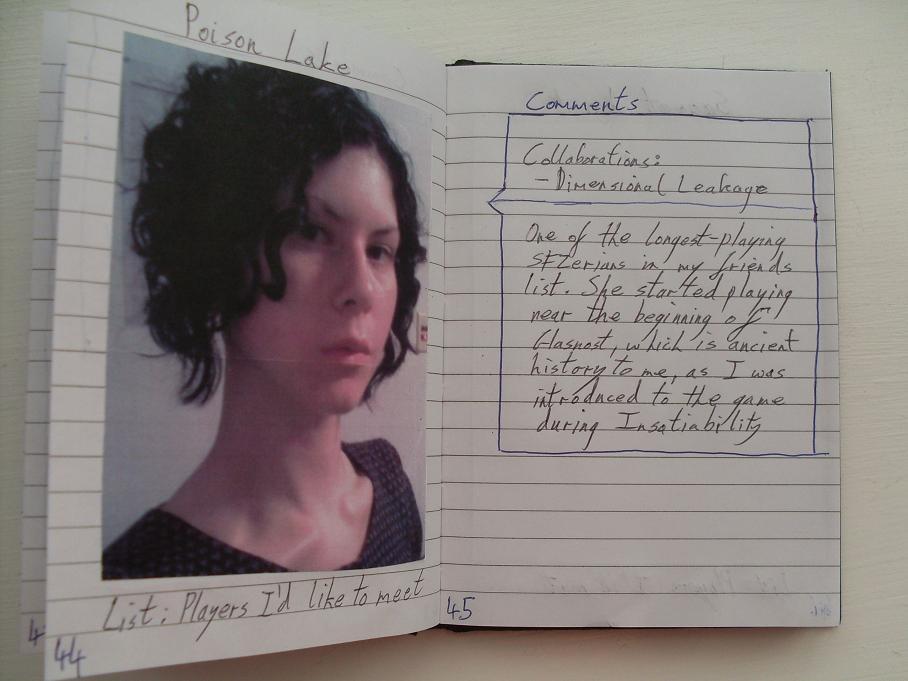 Poison Lake
List: Players I'd like to meet
44
Comments
Collaborations:
- Dimensional Leakage
One of the longest-playing
SFZerians in my friends
list. She started playing
near the beginning of
Glasnost, which is ancient
history to me, as I was
introduced to the game
during Insatiability
45